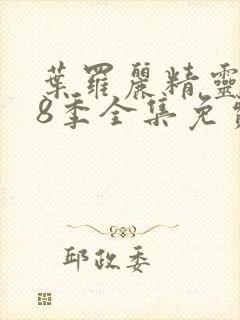 葉羅麗精靈
8季全集免
邱政委